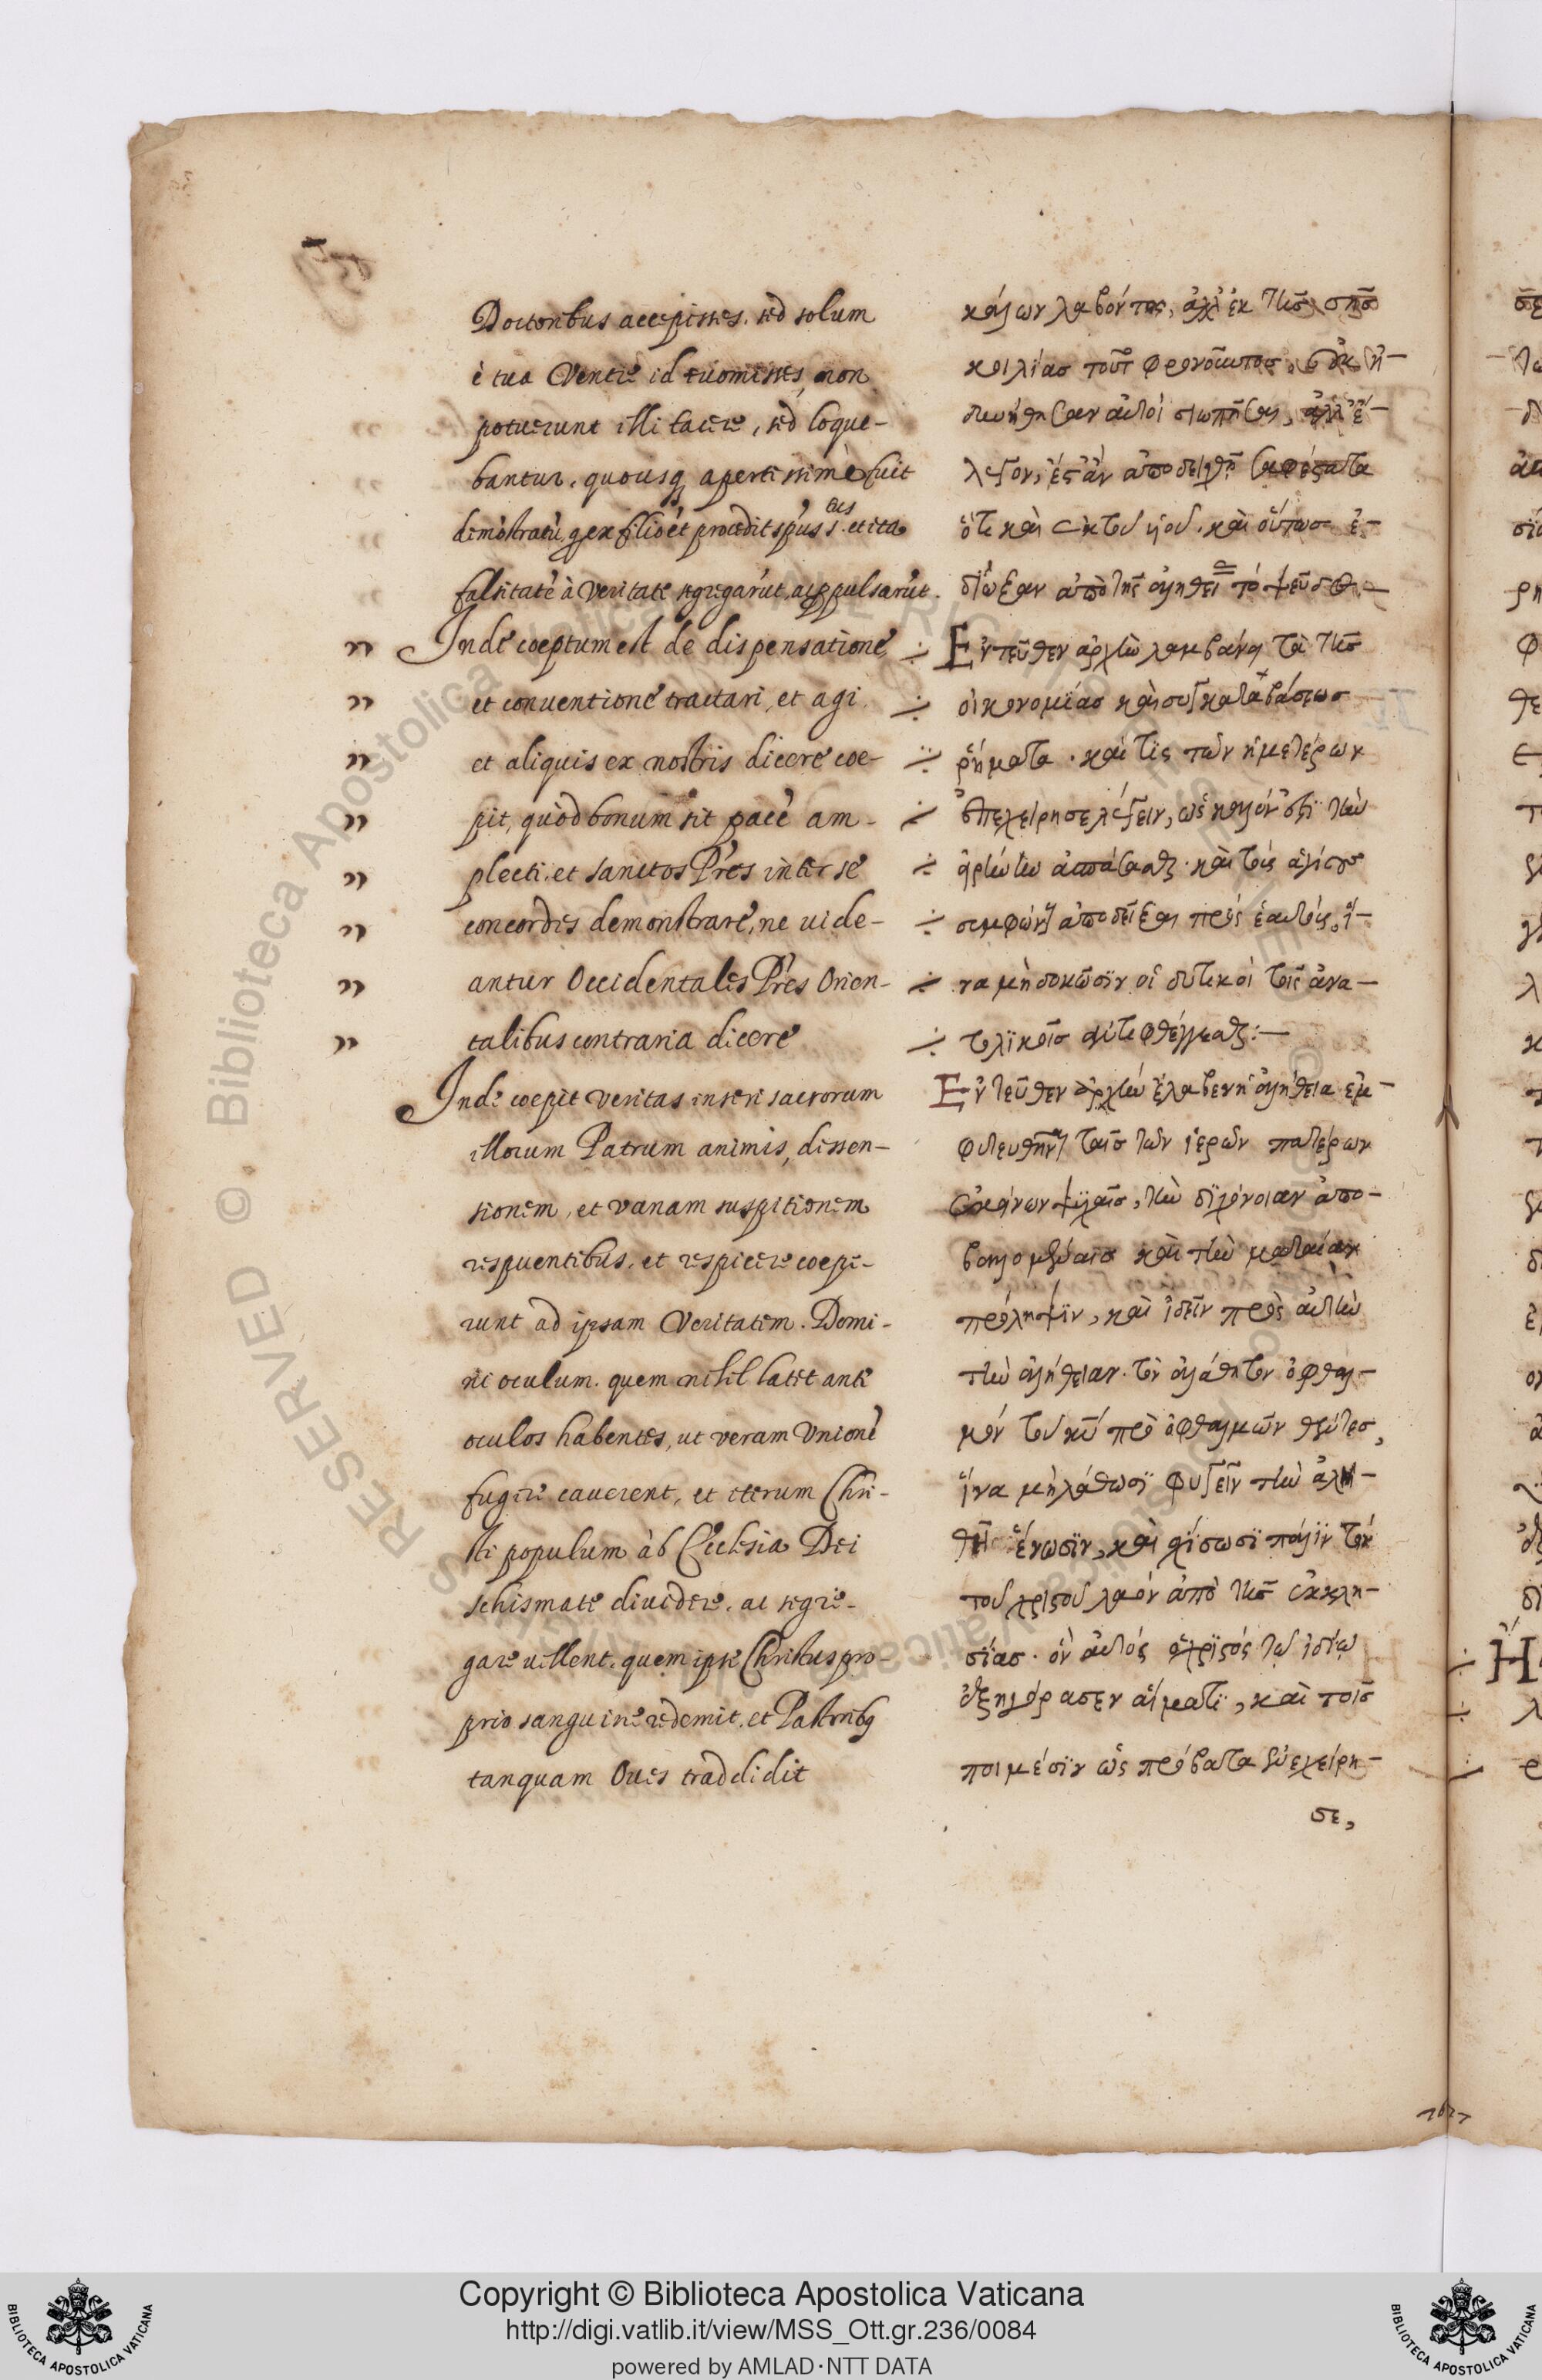 Doctoribus accepisses. sed solum
è tuo Ventre id euomisses, non
potuerunt illi tacere, sed loque-
bantur. quousq apertissimè fuit
demõstratũ, q ex filio et procedit spũs s. et ita
eius
falsitatẽ à veritate segregarũt, ac
Inde coeptum est de dispensatione
et conuentione tractari, et agi
et aliquis ex nostris dicere coe-
pit, quòd bonum sit pacẽ am-
plecti. et sanctos Pres inter se
concordes demonstrare, ne uide-
antur Occidentales Pres Orien-
talibus contraria dicere
Inde coepit veritas inseri sacrorum
illorum Patrum animis, dissen-
sionem, et vanam suspitionem
respuentibus. et respicere coepe-
runt ad ipsam Veritatem. Domi-
ni oculum. quem nihil latet ante
oculos habentes, ut veram Unionẽ
fugere cauerent, et iterum Chri-
sti populum ab Ecclesia Dei
schismate diuidere. ac segre-
gare uellent. quem ipse Christus pro-
prio sanguine redemit. et Pastoribq
tanquam Oues traddidit
λαβόντος, ἀλλ' ἐκ τῆς σῆς
κοιλίας τοῦτ
αὐτοὶ σιωπῆσαι, ἀλλ' ἔ-
λεγον, ἕς ἂν ἀποδειχθῇ
ὅτι καὶ ἐκ τοῦ υἱοῦ. καὶ οὕτως ἐ-
δίωξαν ἀπὸ τῆς ἀληθεί τὸ ψεῦδο
Ἐντεῦθεν ἀρχὴν λαμβάνει τὰ τῆς
οἰκονομίας καὶ συγκαταβάσεως
ῥήματα. καί τις τῶν ἡμετέρων
ἐπεχείρησε λέγειν, ὡς καλόν ἐστι τὴν
εἰρήνην ἀσπάσασθαι. καὶ τοὺς ἁγίους
συμφώνους ἀποδεῖξαι πρὸς ἑαυτούς, ἵ-
να μὴ δοκῶσιν οἱ δυτικοὶ τοῖς ἀνα-
τολικοῖς φθέγγεσθαι:—
Ἐντεῦθεν ἀρχὴν ἔλαβεν ἡ ἀλήθεια ἐμ-
φυτευθῆναι ταῖς τῶν ἱερῶν πατέρων
ἐκείνων ψυχαῖς, τὴν διχόνοιαν ἀπο-
βαλομέναις καὶ τὴν ματαίαν
πρόληψιν, καὶ ἰδεῖν πρὸς αὐτὴν
τὴν ἀλήθειαν. τὸν ἀλάθητον ὀφθαλ-
μόν τοῦ κυ πρὸ ὀφθαλμῶν θέντες,
ἵνα μὴ λάθωσι φυγεῖν τὴν ἀλη-
θῆ ἕνωσιν, καὶ σχίσωσι πάλιν τὸν
τοῦ χριστοῦ λαὸν ἀπὸ τῆς ἐκκλη-
σίας. ὃν αὐτὸς ὁ χριστός τῷ ἰδίῳ
ἐξηγόρασεν αἵματι, καὶ τοῖς
ποιμέσιν ὡς πρόβατα ἐνεχείρη-
σε,
Copyright © Biblioteca Apostolica Vaticana
http://digi.vatlib.it/view/MSS_Ott.gr.236/0084
powered by AMLAD·NTT DATA